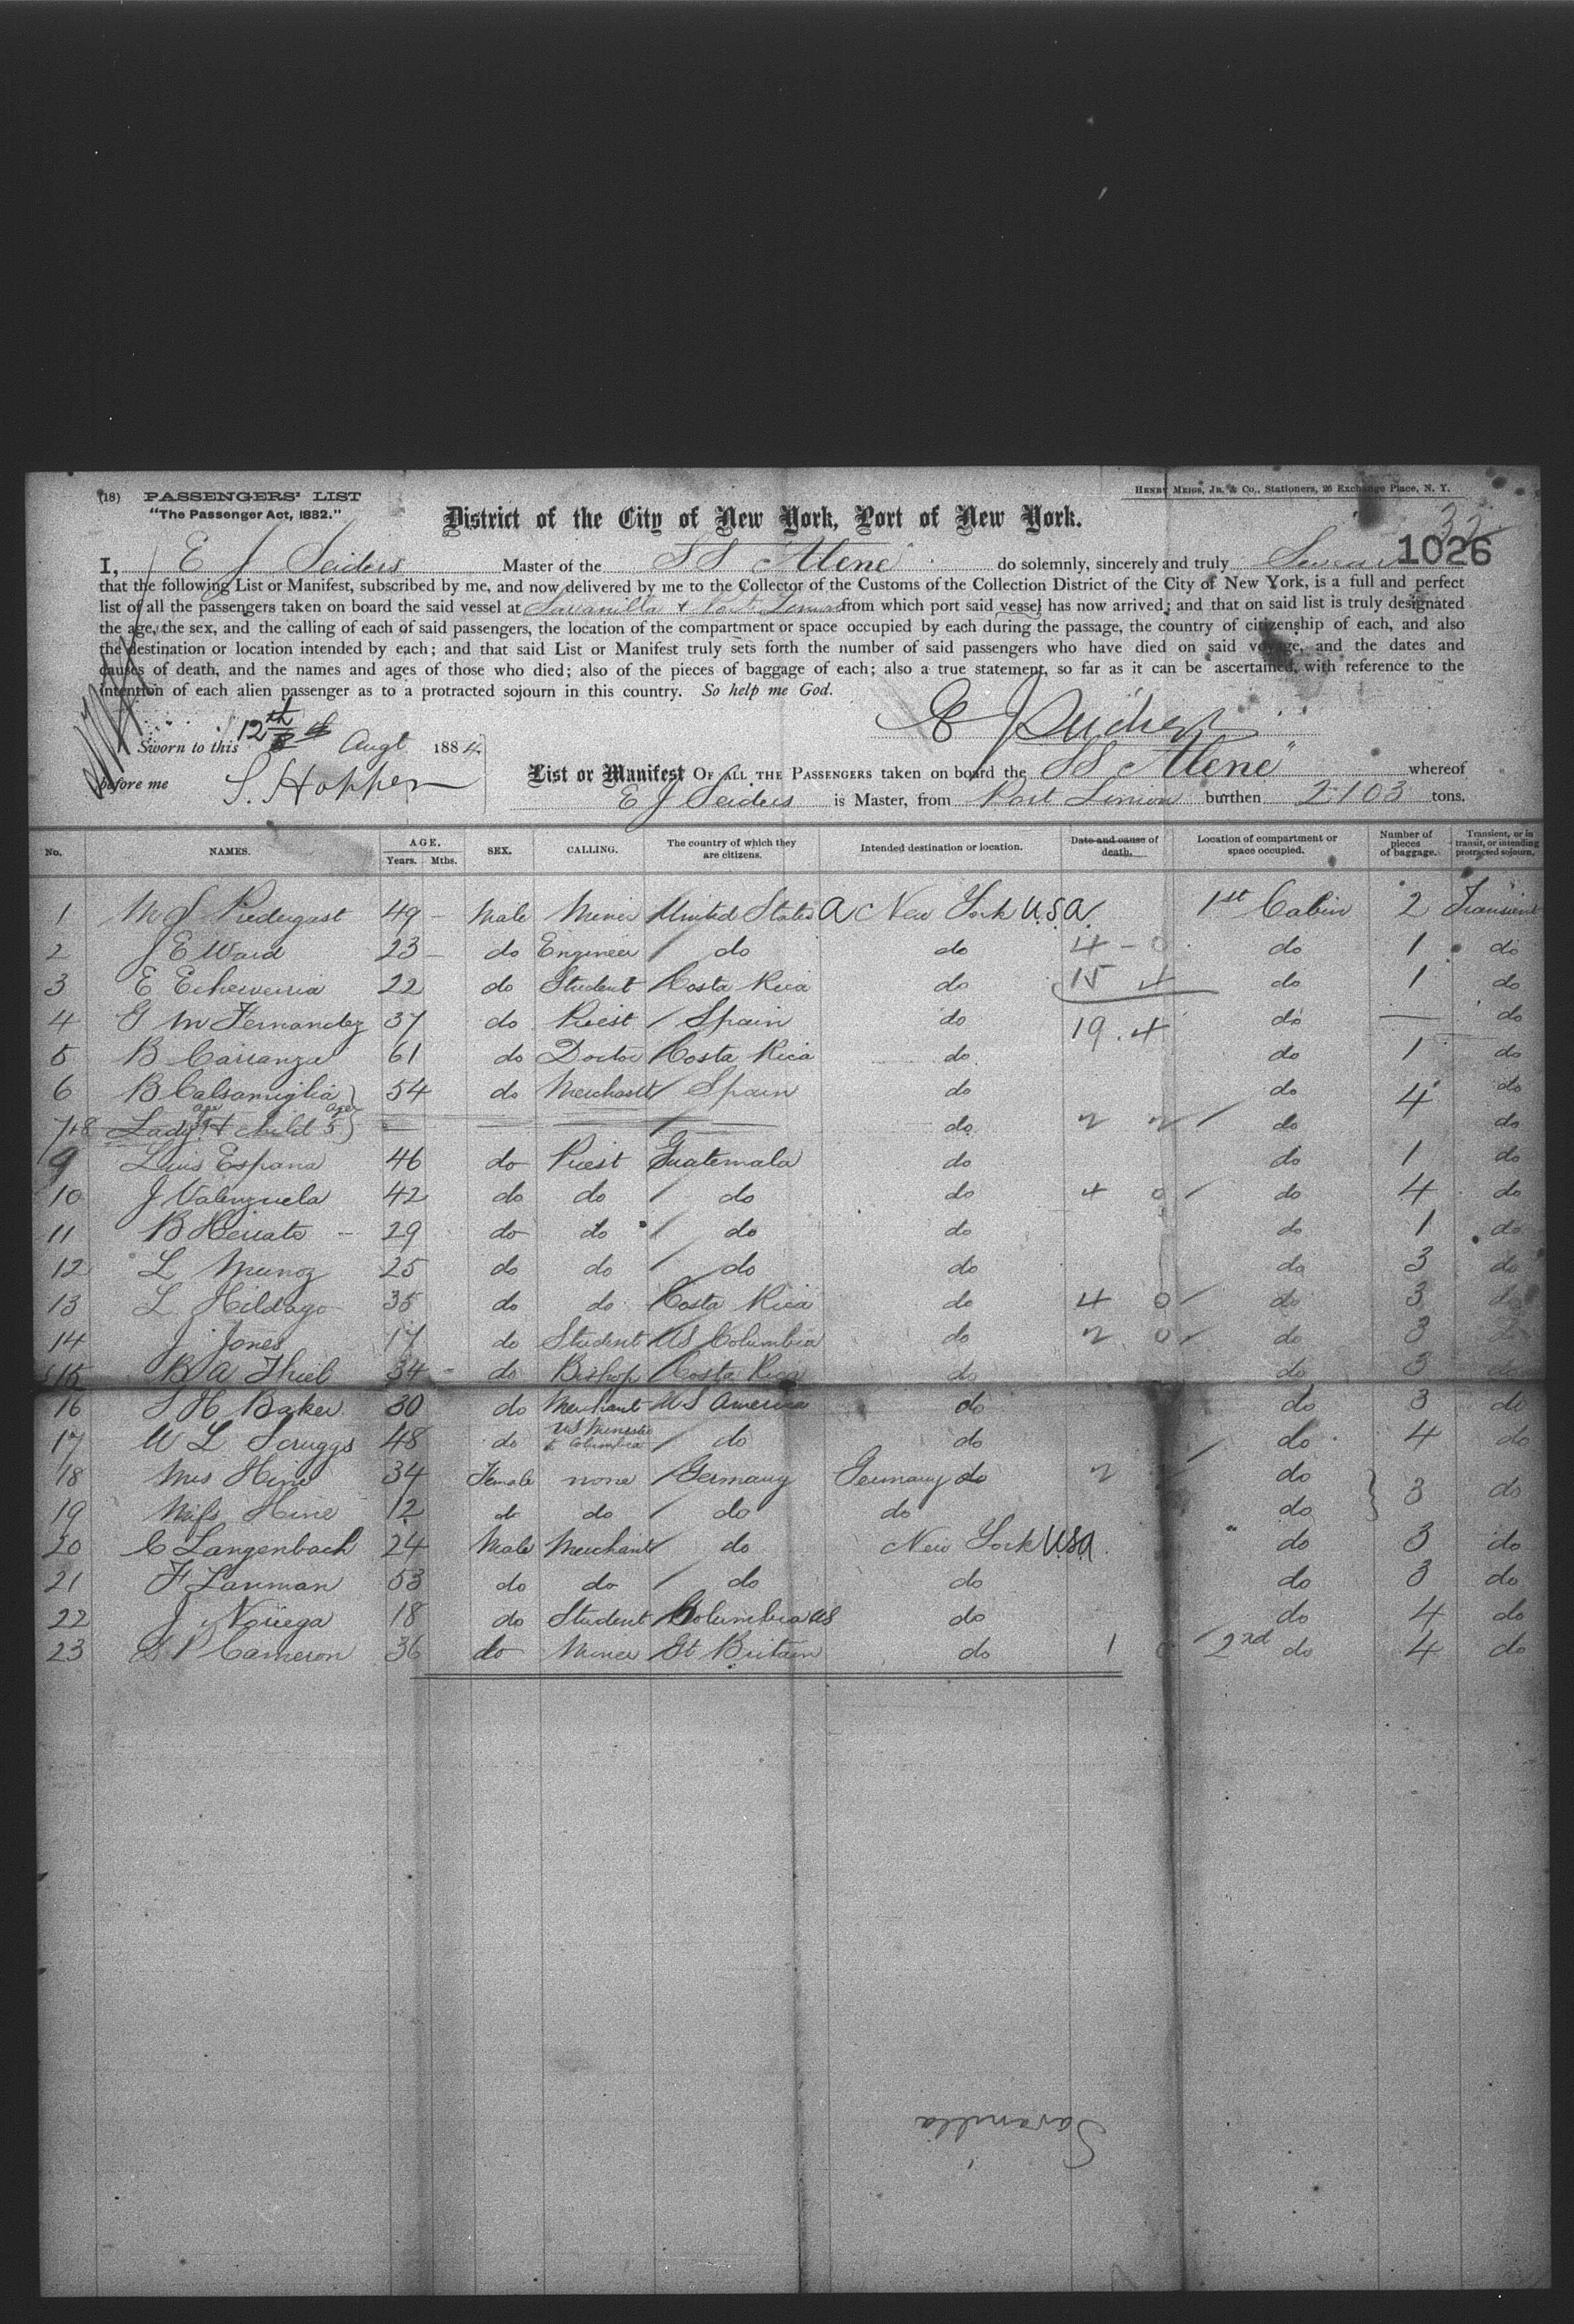 (18) PASSENGERS' LIST
"The Passenger Act, 1882."
HENRY MEIGS, JR. & CO., Stationers, 26 Exchange Place, N. Y.
District of the City of New York, Port of New York.
32
1026
I, E J Seiders Master of the SS Alene do solemnly, sincerely and truly Swear
that the following List or Manifest, subscribed by me, and now delivered by me to the Collector of the Customs of the Collection District of the City of New York, is a full and perfect
list of all the passengers taken on board the said vessel at Savanilla & Port Limon from which port said vessel has now arrived; and that on said list is truly designated
the age, the sex, and the calling of each of said passengers, the location of the compartment or space occupied by each during the passage, the country of citizenship of each, and also
the destination or location intended by each; and that said List or Manifest truly sets forth the number of said passengers who have died on said voyage, and the dates and
causes of death, and the names and ages of those who died; also of the pieces of baggage of each; also a true statement, so far as it can be ascertained, with reference to the
intention of each alien passenger as to a protracted sojourn in this country. So help me God.
E J Seiders
Sworn to this 12th Augt 1884
before me S. Hopper
List or Manifest OF ALL THE PASSENGERS taken on board the SS Alene" whereof
E J Seiders is Master, from Port Limon burthen 2103 tons.
No. NAMES. AGE. Years. Mths. SEX. CALLING. The country of which they are citizens. Intended destination or location. Date and cause of death. Location of compartment or space occupied. Number of pieces of baggage. Transient, or in transit, or intending protracted sojourn.
1 M J Predegast 49 Male Miner United States A New York U.S.A. 1st Cabin 2 Transient
2 J E Ward 23 do Engineer do do 4 - 0 do 1 do
3 E Echeverria 22 do Student Costa Rica do 15 4 do 1 do
4 G M Fernandez 37 do Priest Spain do 19. 4 do — do
5 B Carranza 61 do Doctor Costa Rica do do 1 do
6 B Calsamiglia 54 do Merchant Spain do do 4 do
7+8 Lady & child 5 do 2 2 do do
9 Luis Espana 46 do Priest Guatemala do do 1 do
10 J Valenzuela 42 do do do do 4 0 do 4 do
11 B Herrate 29 do do do do do 1 do
12 L Munoz 25 do do do do do 3 do
13 L Hildago 35 do do Costa Rica do 4 0 do 3 do
14 J Jones 17 do Student US Columbia do 2 0 do 3 do
15 B A Thiel 34 do Bishop Costa Rica do do 3 do
16 S H Baker 30 do Merchant US America do do 3 do
17 W L Scruggs 48 do US Minister to Columbia do do do 4 do
18 Mrs Hine 34 Female none Germany Germany do 2 do 3 do
19 Miss Hine 12 do do do do do
20 C Langenbach 24 Male Merchant do New York USA do 3 do
21 F Lanman 53 do do do do do 3 do
22 J Noriega 18 do Student Columbia US do do 4 do
23 S P Cameron 36 do Miner Gt Britain do 1 0 2nd do 4 do
Savanilla